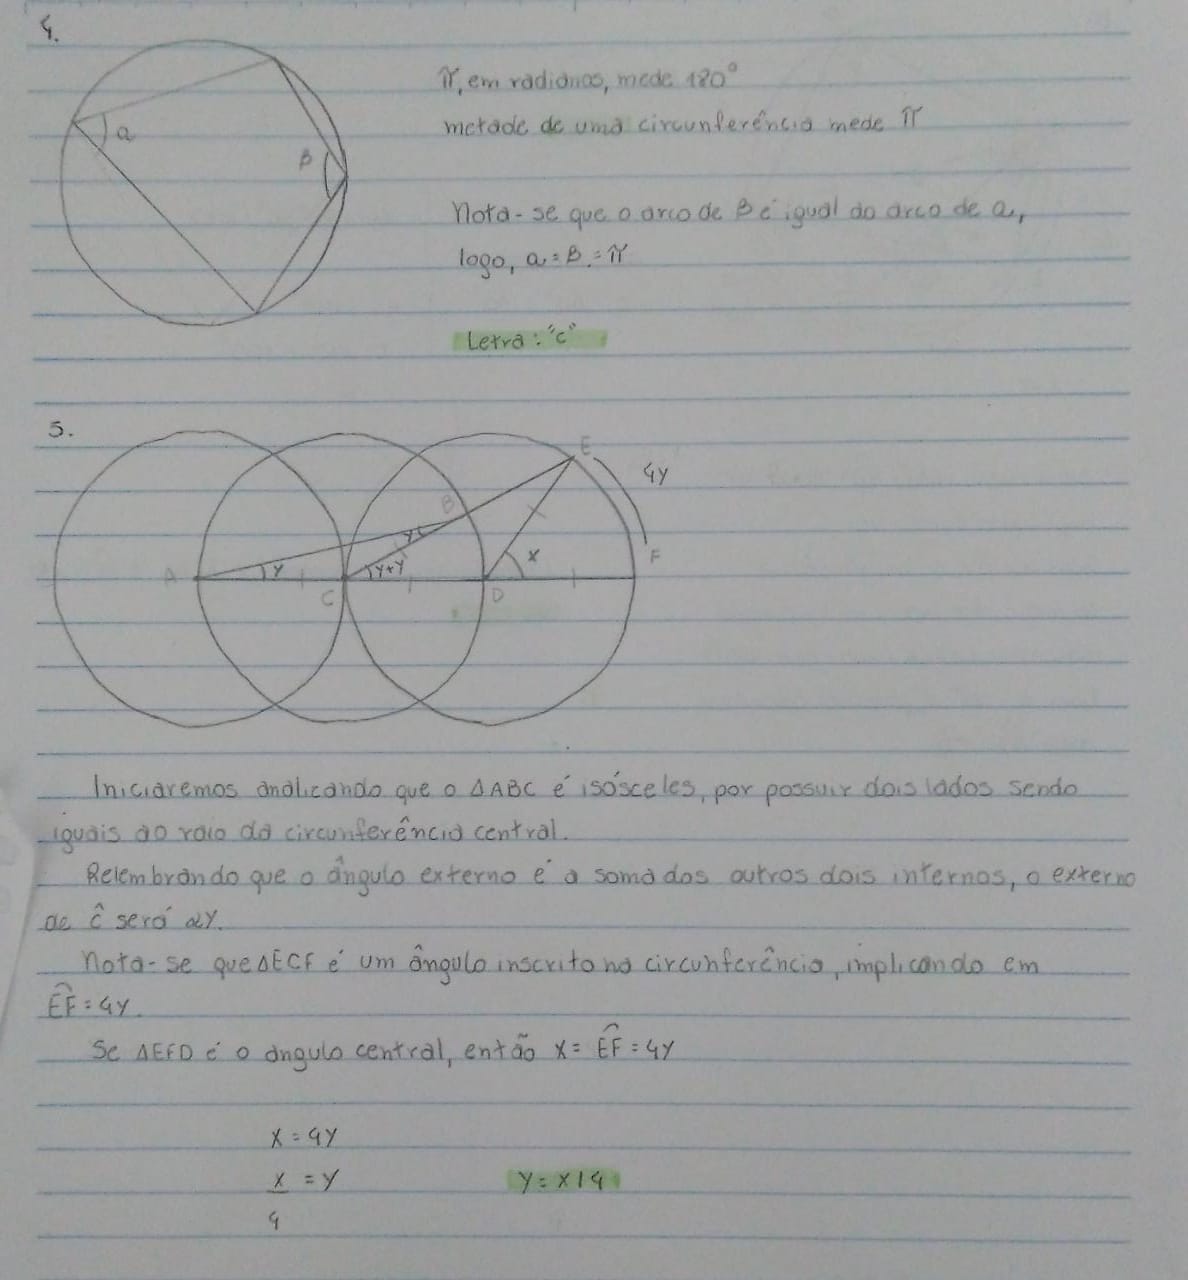 4.
π, em radianos, mede 180°
metade de uma circunferência mede π
a
β
Nota-se que o arco de β é igual ao arco de a,
logo, a = β = π
Letra: "c"
5.
E
4y
B
y
x
F
A
y
y+y
C
D
Iniciaremos analizando que o ΔABC é isósceles, por possuir dois lados sendo
iguais ao raio da circunferência central.
Relembrando que o ângulo externo é a soma dos outros dois internos, o externo
de ĉ será 2y.
Nota-se que ΔECF é um ângulo inscrito na circunferência, implicando em
E͡F = 4y.
Se ΔEFD é o ângulo central, então x = E͡F = 4y
x = 4y
x = y
4
y = x/4